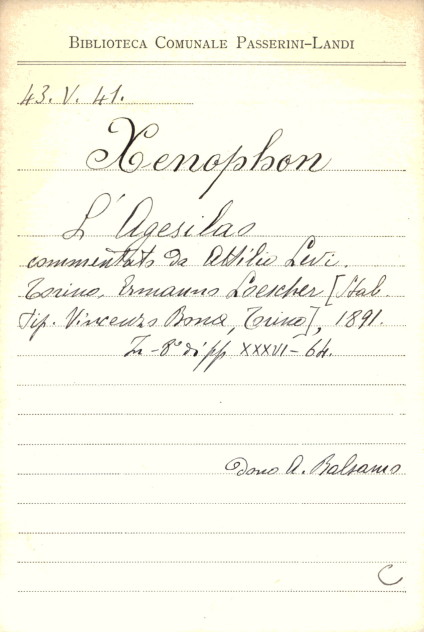 BIBLIOTECA COMUNALE PASSERINI-LANDI
43. V. 41.
Xenophon
L'Agesilao
commentato da Attilio Levi.
Torino, Ermanno Loescher [Stab.
Tip. Vincenzo Bona, Torino], 1891.
In-8° di pp XXXVI-64.
Dono A. Balsamo
C